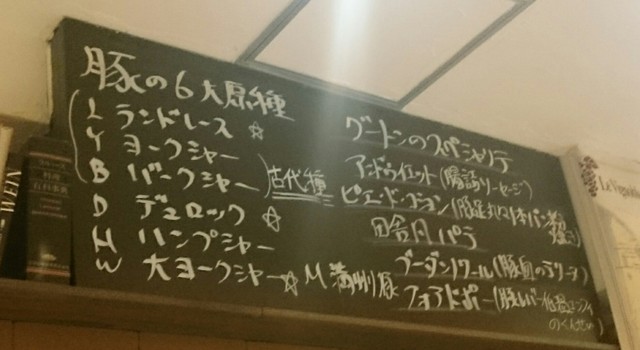 豚の6大原種
L ランドレース ☆
Y ヨークシャー
B バークシャー 古代種
D デュロック ☆
H ハンプシャー
W 大ヨークシャー ☆ M 満州豚
グートンのスペシャリテ
アンドウイエット(腸詰ソーセージ)
ピエ・ド・コション(豚足
田舎風パテ
ブーダンノワール(豚血のテリーヌ)
フォアドポー(豚レバー低温
のくんせい)
WEIN
料理
百科事典